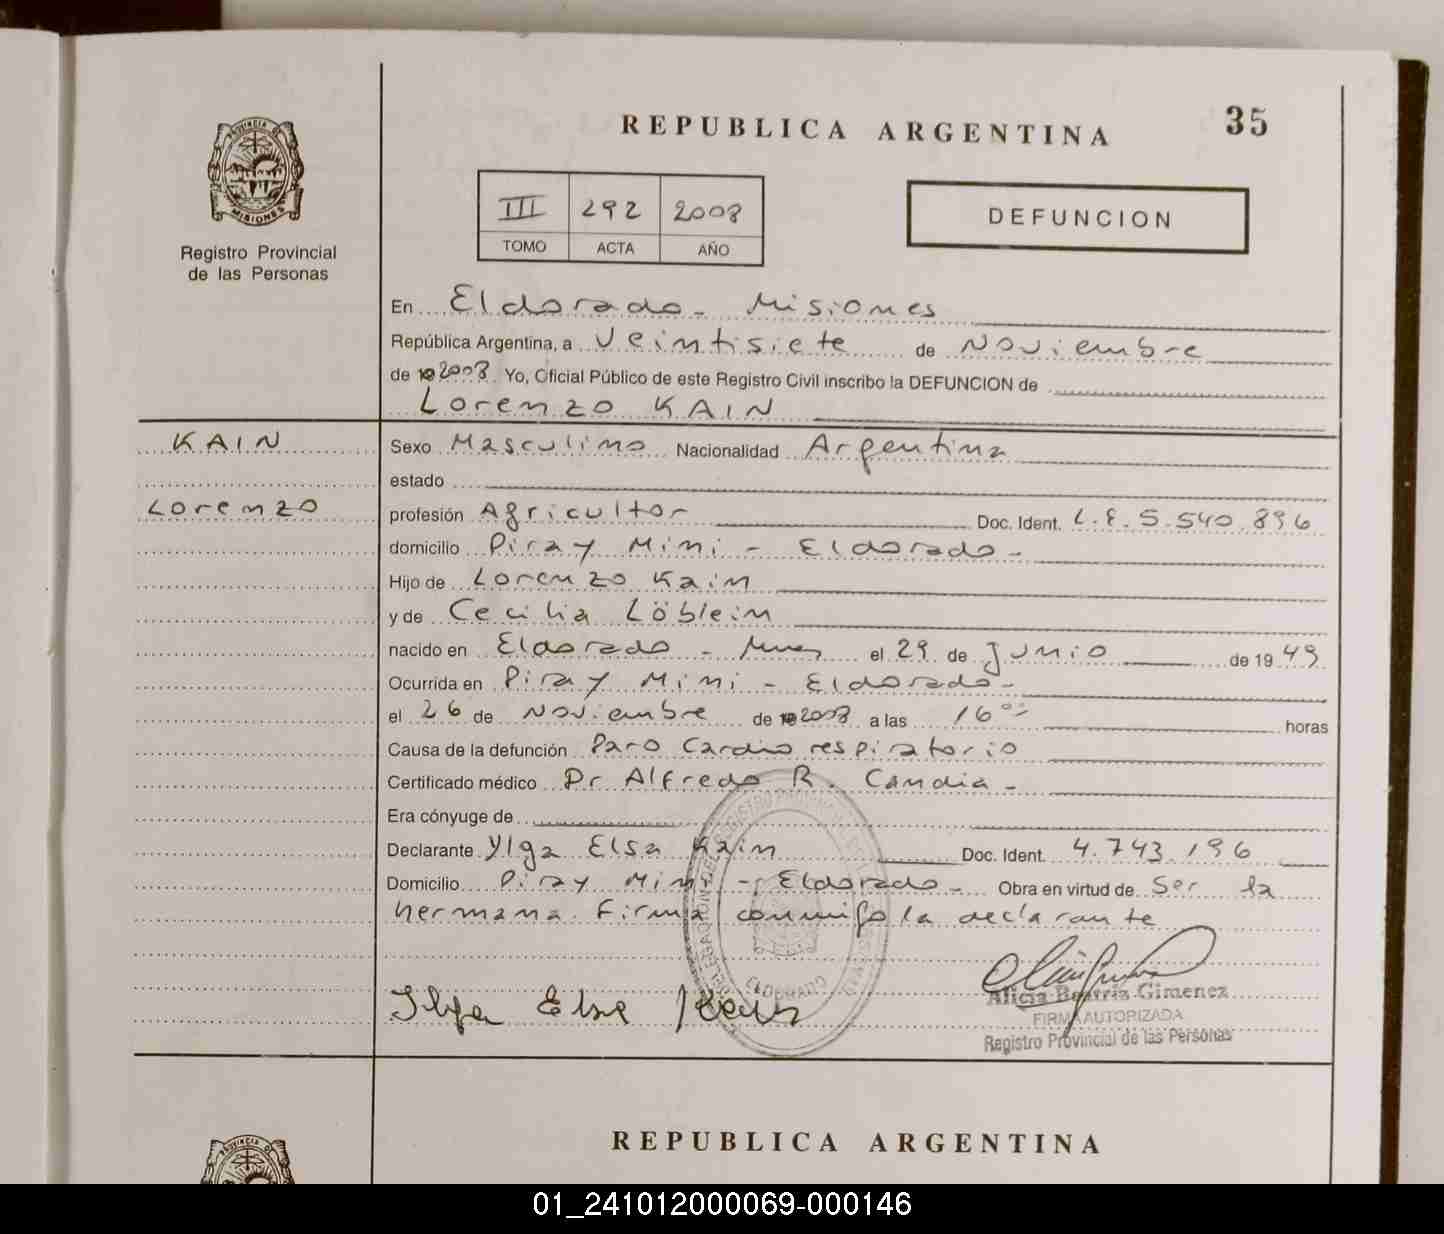 35
REPUBLICA ARGENTINA
PROVINCIA DE
MISIONES
Registro Provincial
de las Personas
III 292 2008
TOMO ACTA AÑO
DEFUNCION
En Eldorado - Misiones
República Argentina, a Veintisiete de Noviembre
de 2008 Yo, Oficial Público de este Registro Civil inscribo la DEFUNCION de
Lorenzo KAIN
KAIN
Lorenzo
Sexo Masculino Nacionalidad Argentina
estado
profesión Agricultor Doc. Ident. L.E. 5.540.896
domicilio Piray Mini - Eldorado -
Hijo de Lorenzo Kain
y de Cecilia Löblein
nacido en Eldorado - Mnes el 29 de Junio de 1949
Ocurrida en Piray Mini - Eldorado -
el 26 de Noviembre de 2008 a las 16 horas
Causa de la defunción Paro Cardio respiratorio
Certificado médico Dr Alfredo R. Candia -
Era cónyuge de
Declarante Ylga Elsa Kain Doc. Ident. 4.743.196
Domicilio Piray Mini - Eldorado - Obra en virtud de Ser la
hermana. Firma conmigo la declarante
Ilga Elsa Kain
ELDORADO
Alicia Beatriz Gimenez
FIRMA AUTORIZADA
Registro Provincial de las Personas
REPUBLICA ARGENTINA
PROVINCIA DE
01_241012000069-000146